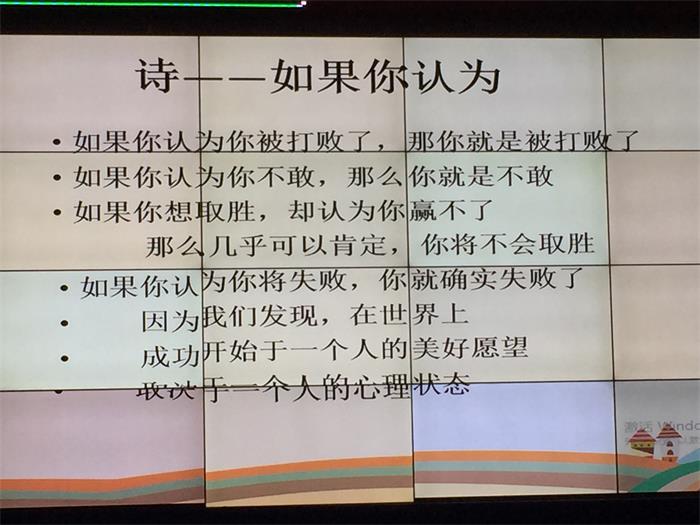 诗——如果你认为
• 如果你认为你被打败了，那你就是被打败了
• 如果你认为你不敢，那么你就是不敢
• 如果你想取胜，却认为你赢不了
那么几乎可以肯定，你将不会取胜
• 如果你认为你将失败，你就确实失败了
• 因为我们发现，在世界上
• 成功开始于一个人的美好愿望
• 取决于一个人的心理状态
激活 Windo